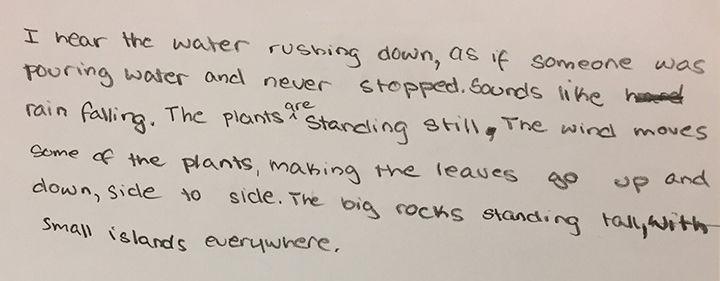 I hear the water rushing down, as if someone was
pouring water and never stopped. Sounds like
rain falling. The plants are standing still, The wind moves
some of the plants, making the leaves go up and
down, side to side. The big rocks standing tall, with
small islands everywhere.